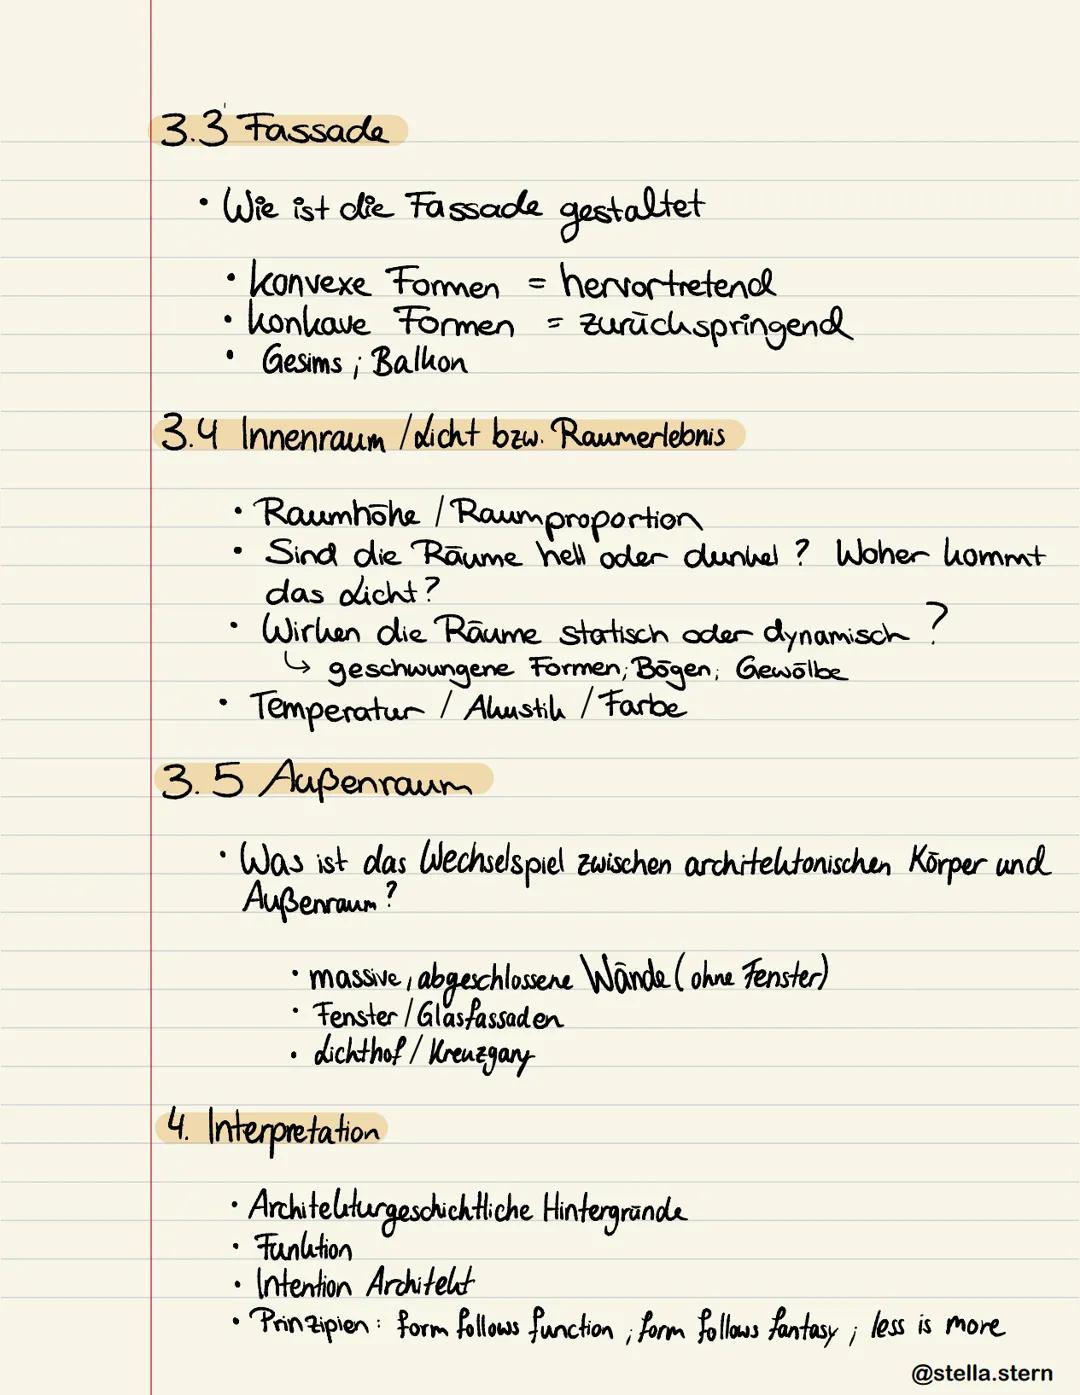 3.3 Fassade
• Wie ist die Fassade gestaltet
• konvexe Formen = hervortretend
• konkave Formen = zurückspringend
• Gesims ; Balkon
3.4 Innenraum / Licht bzw. Raumerlebnis
• Raumhöhe / Raumproportion
• Sind die Räume hell oder dunkel ? Woher kommt
das Licht ?
• Wirken die Räume statisch oder dynamisch ?
↳ geschwungene Formen; Bögen; Gewölbe
• Temperatur / Akustik / Farbe
3.5 Außenraum
• Was ist das Wechselspiel zwischen architektonischen Körper und
Außenraum ?
• massive, abgeschlossene Wände ( ohne Fenster)
• Fenster / Glasfassaden
• Lichthof / Kreuzgang
4. Interpretation
• Architekturgeschichtliche Hintergründe
• Funktion
• Intention Architekt
• Prinzipien : form follows function ; form follows fantasy ; less is more
@stella.stern